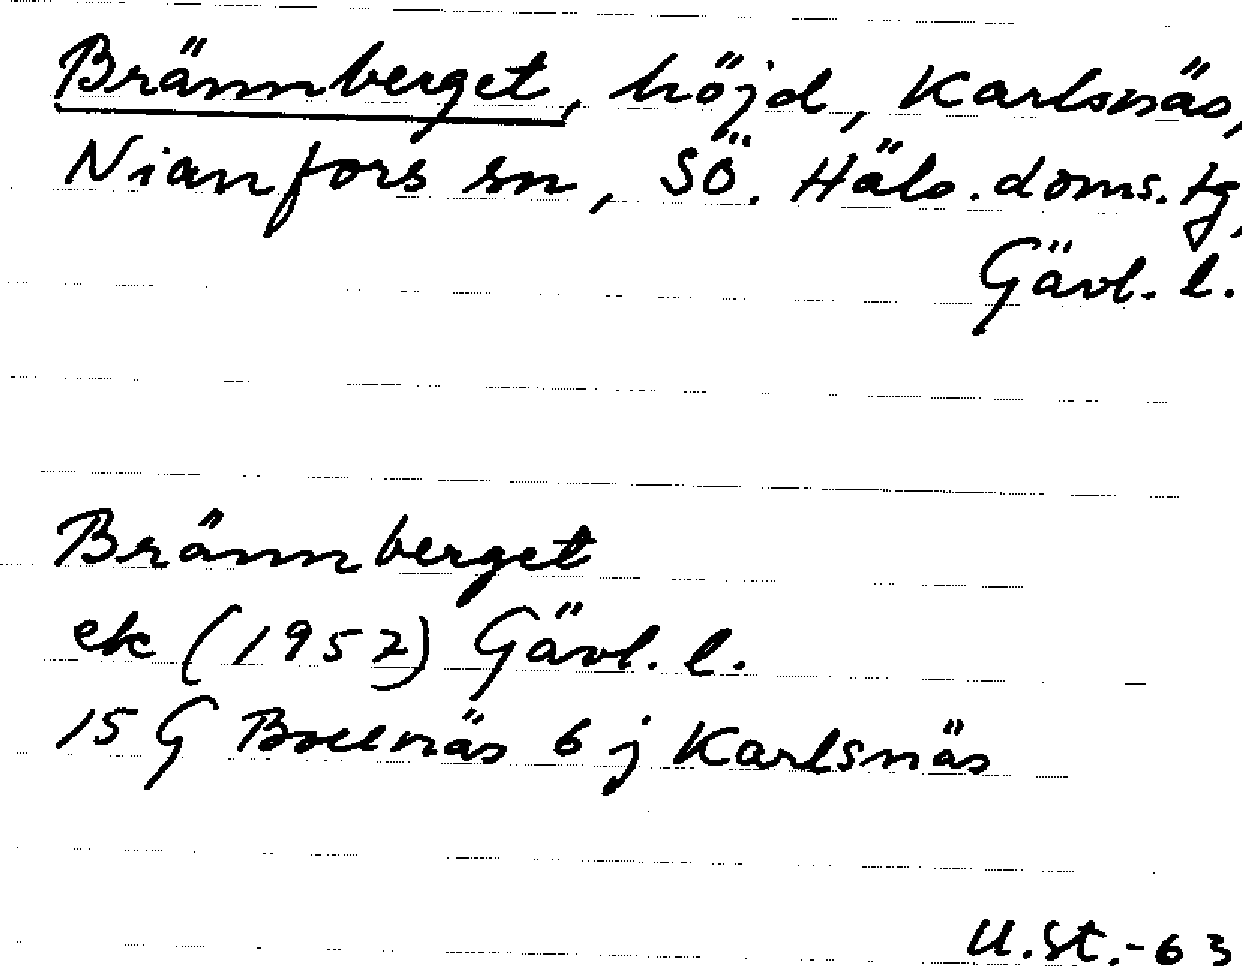 Brännberget, höjd, Karlsnäs,
Nianfors sn, SÖ. Häls. doms. tg,
Gävl. l.
Brännberget
ek (1952) Gävl. l.
15 G Bollnäs 6 j Karlsnäs
U.St.-63